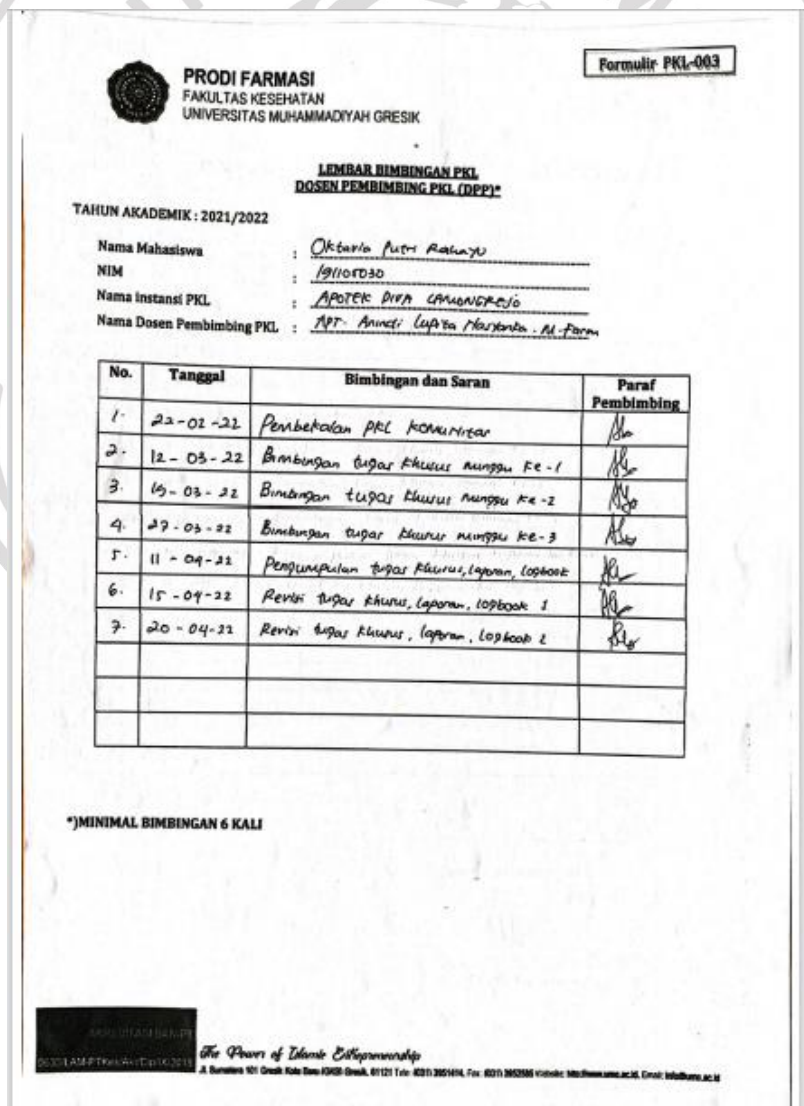 Formulir PKL-003
PRODI FARMASI
FAKULTAS KESEHATAN
UNIVERSITAS MUHAMMADIYAH GRESIK
LEMBAR BIMBINGAN PKL
DOSEN PEMBIMBING PKL (DPP)*
TAHUN AKADEMIK : 2021/2022
Nama Mahasiswa : Oktavia Putri Rahayu
NIM : 191105030
Nama instansi PKL : APOTEK DIVA LAMONGREJO
Nama Dosen Pembimbing PKL : Apt. Anindi Lupita M-Farm
No. Tanggal Bimbingan dan Saran Paraf Pembimbing
1. 22-02-22 Pembekalan PKL Komunitas
2. 12-03-22 Bimbingan tugas khusus minggu ke-1
3. 19-03-22 Bimbingan tugas khusus minggu ke-2
4. 27-03-22 Bimbingan tugas khusus minggu ke-3
5. 11-04-22 Pengumpulan tugas khusus, laporan, logbook
6. 15-04-22 Revisi tugas khusus, laporan, logbook 1
7. 20-04-22 Revisi tugas khusus, laporan, logbook 2
*)MINIMAL BIMBINGAN 6 KALI
The Power of Islamic Entrepreneurship
Jl. Sumatera 101 Gresik Kota Baru (GKB) Gresik, 61121 Telp. (031) 3951414, Fax. (031) 3952585 Website: http://www.umg.ac.id, Email: info@umg.ac.id